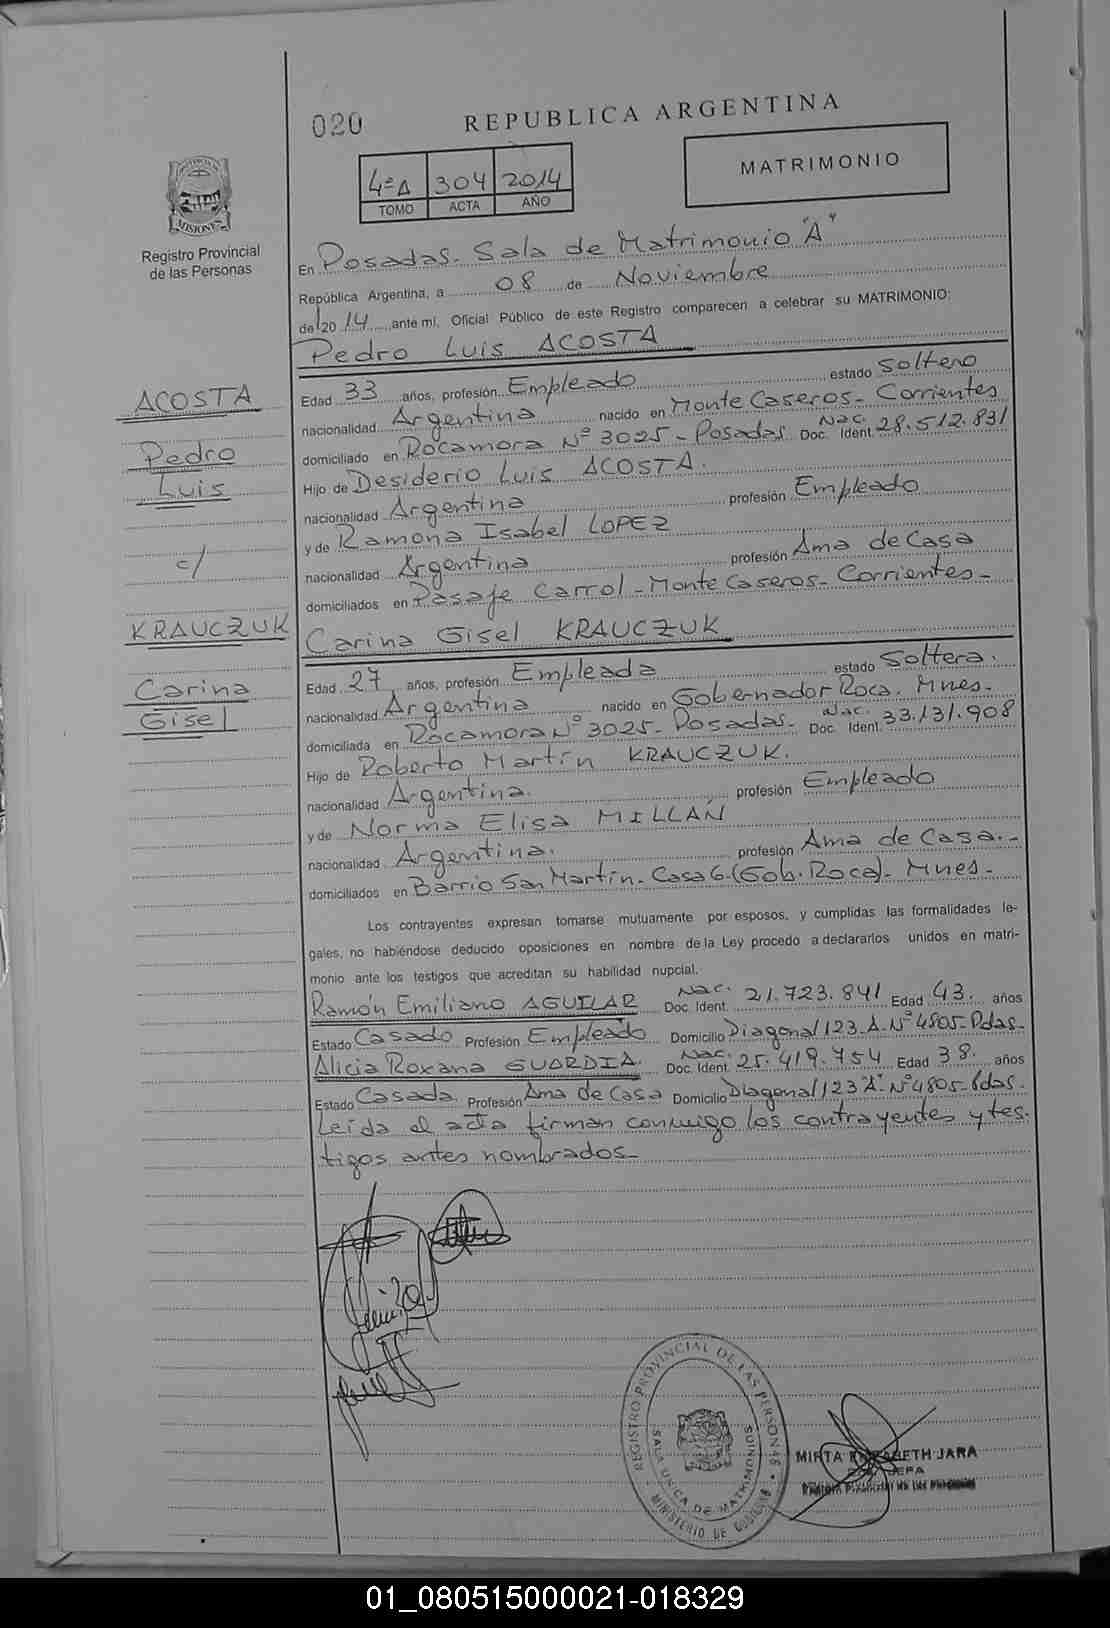 020
REPUBLICA ARGENTINA
MATRIMONIO
4º A 304 2014
TOMO ACTA AÑO
PROVINCIA DE MISIONES
Registro Provincial
de las Personas
En Posadas. Sala de Matrimonio "A"
República Argentina, a 08 de Noviembre
del 2014 ante mí, Oficial Público de este Registro comparecen a celebrar su MATRIMONIO:
Pedro Luis ACOSTA
ACOSTA
Pedro
Luis
c/
KRAUCZUK
Carina
Gisel
Edad 33 años, profesión Empleado estado Soltero
nacionalidad Argentina nacido en Monte Caseros - Corrientes
domiciliado en Rocamora Nº 3025 - Posadas Doc. Nac. Ident. 28.512.831
Hijo de Desiderio Luis ACOSTA.
nacionalidad Argentina profesión Empleado
y de Ramona Isabel LOPEZ
nacionalidad Argentina profesión Ama de Casa
domiciliados en Pasaje Carrol - Monte Caseros - Corrientes -
Carina Gisel KRAUCZUK
Edad 27 años, profesión Empleada estado Soltera.
nacionalidad Argentina nacido en Gobernador Roca. Mnes.
domiciliada en Rocamora Nº 3025 - Posadas - Doc. Nac. Ident. 33.131.908
Hijo de Roberto Martín KRAUCZUK.
nacionalidad Argentina. profesión Empleado
y de Norma Elisa MILLÁN
nacionalidad Argentina. profesión Ama de Casa. -
domiciliados en Barrio San Martín - Casa 6 - (Gob. Roca) - Mnes -
Los contrayentes expresan tomarse mutuamente por esposos, y cumplidas las formalidades le-
gales, no habiéndose deducido oposiciones en nombre de la Ley procedo a declararlos unidos en matri-
monio ante los testigos que acreditan su habilidad nupcial.
Ramón Emiliano AGUILAR Doc. Nac. Ident. 21.723.841 Edad 43. años
Estado Casado Profesión Empleado Domicilio Diagonal 123 - A - Nº 4805 - Pdas -
Alicia Roxana GUARDIA. Doc. Nac. Ident. 25.419.754 Edad 38. años
Estado Casada Profesión Ama de Casa Domicilio Diagonal 123 "A" Nº 4805 - Pdas.
Leída el acta firman conmigo los contrayentes y tes-
tigos antes nombrados -
REGISTRO PROVINCIAL DE LAS PERSONAS
SALA UNICA DE MATRIMONIOS
MINISTERIO DE GOBIERNO
MIRTA ELIZABETH JARA
JEFA
Registro Provincial de las Personas
01_080515000021-018329